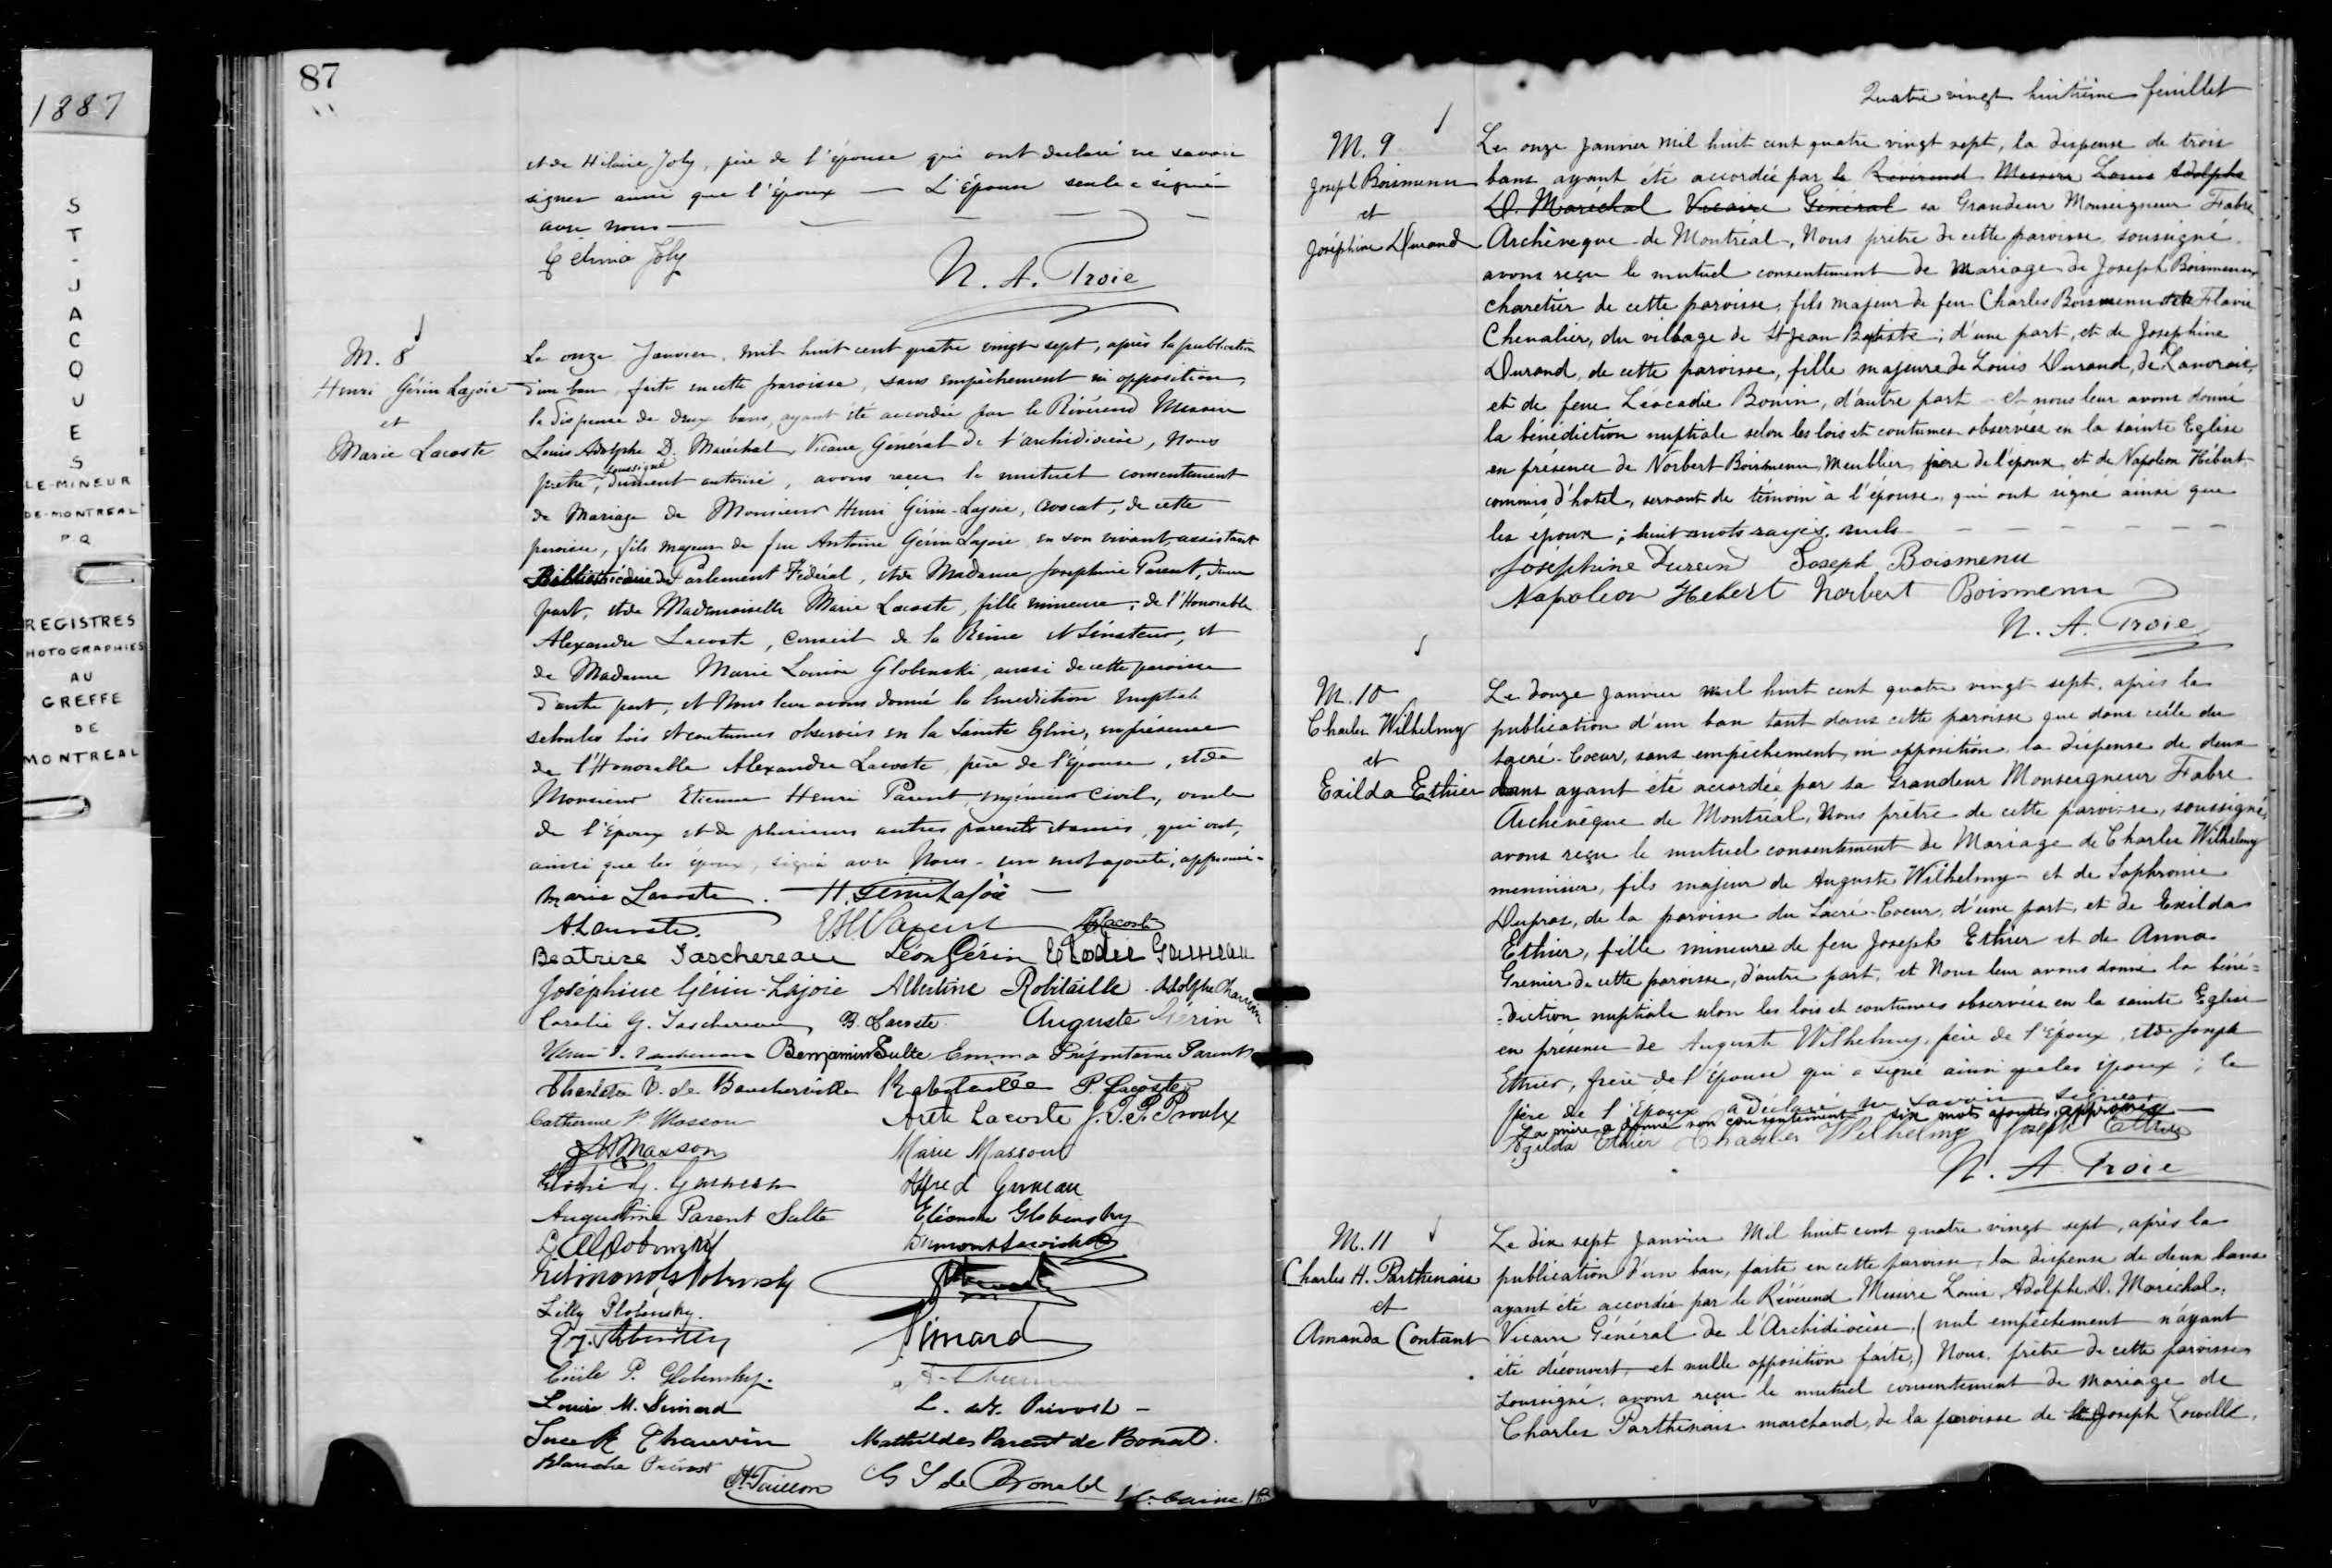 1887
ST-JACQUES
LE-MINEUR
DE-MONTREAL
P Q
REGISTRES
PHOTOGRAPHIES
AU
GREFFE
DE
MONTREAL
87
et de Hilaire Joly, père de l'épouse qui ont déclaré ne savoir
signer ainsi que l'époux — L'épouse seule a signé
avec nous —
Célima Joly
N. A. Troie
M. 8
Henri Gérin Lajoie
et
Marie Lacoste
Le onze Janvier, mil huit cent quatre vingt sept, après la publication
d'un ban, faite en cette paroisse, sans empêchement ni opposition,
la dispense de deux bans, ayant été accordée par le Révérend Messire
Louis Adolphe D. Maréchal, Vicaire Général de l'archidiocèse, Nous
soussigné
prêtre, dûment autorisé, avons reçu le mutuel consentement
de Mariage de Monsieur Henri Gérin-Lajoie, avocat, de cette
paroisse, fils majeur de feu Antoine Gérin Lajoie en son vivant, assistant
Bibliothécaire du Parlement Fédéral, et de Madame Josephine Parent, d'une
part, et de Mademoiselle Marie Lacoste, fille mineure, de l'Honorable
Alexandre Lacoste, Conseil de la Reine et Sénateur, et
de Madame Marie Louise Globenski, aussi de cette paroisse
d'autre part, et Nous leur avons donné la bénédiction nuptiale
selon les lois et coutumes observées en la Sainte Eglise, en présence
de l'Honorable Alexandre Lacoste, père de l'épouse, et de
Monsieur Etienne Henri Parent, ingénieur civil, oncle
de l'époux et de plusieurs autres parents et amis, qui ont,
ainsi que les époux, signé avec Nous - un mot ajouté, approuvé -
Marie Lacoste. — H. Gérin Lajoie —
A. Lacoste. E H Parent Lacoste
Béatrice Taschereau Léon Gérin Elodie Garneau
Joséphine Gérin-Lajoie Albertine Robitaille Adolphe Chauvin
Coralie G. Taschereau B. Lacoste Auguste Gérin
Benjamin Sulte Emma Préfontaine Parent
Charlotte B. de Boucherville Robitaille P. Lacoste
Catherine P Masson Arth Lacoste J. P. P. Proulx
Masson Marie Masson
Elodie G. Garneau Alfred Garneau
Augustine Parent Sulte Eléonore Globensky
Globensky
Globensky
Lilly Globensky
Simard
Cécile P. Globensky.
Louise M. Simard L. Prévost -
Luce R Chauvin Mathilde Parent de Bonald.
Blanche Prévost A. Taillon G S de Bonald
Quatre vingt huitième feuillet
M. 9
Joseph Boismenu
et
Joséphine Durand
Le onze Janvier mil huit cent quatre vingt sept, la dispense de trois
bans ayant été accordée par le Révérend Messire Louis Adolphe
D. Maréchal Vicaire Général sa Grandeur Monseigneur Fabre
Archevêque de Montréal, Nous prêtre de cette paroisse, soussigné.
avons reçu le mutuel consentement de Mariage de Joseph Boismenu
charetier de cette paroisse, fils majeur de feu Charles Boismenu et de Flavie
Chevalier, du village de St Jean Baptiste; d'une part, et de Josephine
Durand, de cette paroisse, fille majeure de Louis Durand, de Lanoraie,
et de feue Léocadie Bonin, d'autre part et nous leur avons donné
la bénédiction nuptiale selon les lois et coutumes observées en la sainte Eglise
en présence de Norbert Boismenu, meublier, frère de l'époux, et de Napoléon Hébert
commis d'hotel, servant de témoin à l'épouse, qui ont signé ainsi que
les époux; huit mots rayés nuls
Joséphine Durand Joseph Boismenu
Napoleon Hebert Norbert Boismenu
N. A. Troie
M. 10
Charles Wilhelmy
et
Exilda Ethier
Le douze Janvier mil huit cent quatre vingt sept, après la
publication d'un ban tant dans cette paroisse que dans celle du
Sacré-Coeur, sans empêchement, ni opposition, la dispense de deux
bans ayant été accordée par sa Grandeur Monseigneur Fabre
Archevêque de Montréal, Nous prêtre de cette paroisse, soussigné,
avons reçu le mutuel consentement de Mariage de Charles Wilhelmy
menuisier, fils majeur de Auguste Wilhelmy et de Sophronie
Dupras, de la paroisse du Sacré-Coeur, d'une part, et de Exilda
Ethier, fille mineure de feu Joseph Ethier et de Anna
Grenier de cette paroisse, d'autre part, et Nous leur avons donné la béné=
diction nuptiale selon les lois et coutumes observées en la sainte Eglise
en présence de Auguste Wilhelmy, père de l'époux, et de Joseph
Ethier, frère de l'épouse qui a signé ainsi que les époux; le
père de l'époux a déclaré ne savoir signer.
La mère a donné son consentement six mots ajoutés, approuvés —
Exzilda Ethier Charles Wilhelmy Joseph Ethier
N. A. Troie
M. 11
Charles H. Parthenais
et
Amanda Contant
Le dix sept Janvier Mil huit cent quatre vingt sept, après la
publication d'un ban, faite en cette paroisse, la dispense de deux bans
ayant été accordée par le Révérend Messire Louis Adolphe D. Maréchal,
Vicaire Général de l'Archidiocèse, (nul empêchement n'ayant
été découvert, et nulle opposition faite,) Nous, prêtre de cette paroisse
soussigné, avons reçu le mutuel consentement de Mariage de
Charles Parthenais marchand, de la paroisse de St Joseph Lowell,